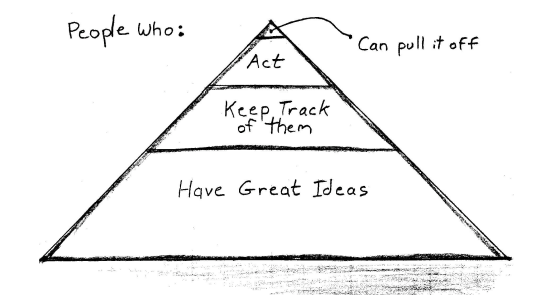 People Who:
Can pull it off
Act
Keep Track
of them
Have Great Ideas